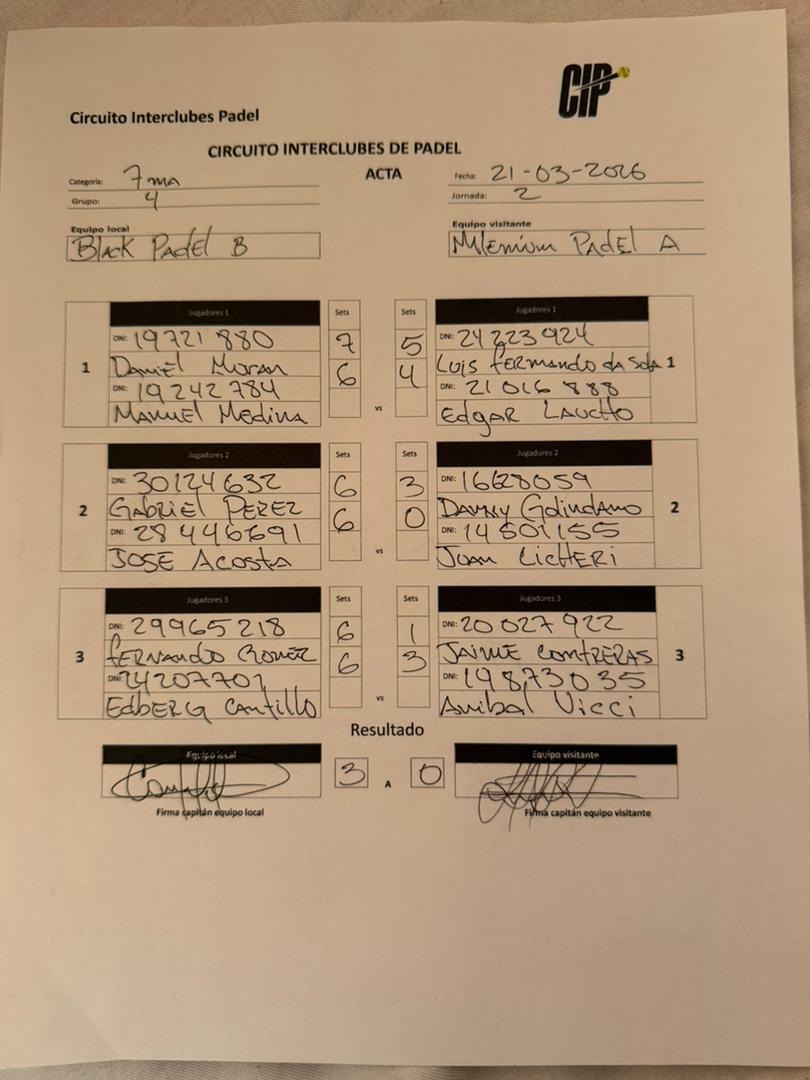 CIP
Circuito Interclubes Padel
CIRCUITO INTERCLUBES DE PADEL
Categoría: 7ma
ACTA
Fecha: 21-03-2026
Grupo: 4
Jornada: 2
Equipo local
Black Padel B
Equipo visitante
Milenium Padel A
Jugadores 1
Sets
Sets
Jugadores 1
1
DNI: 19721880
7
5
DNI: 24223924
Daniel Moran
6
4
Luis fermando da Soda
1
DNI: 19242784
DNI: 21016888
Manuel Medina
vs
Edgar Laucho
Jugadores 2
Sets
Sets
Jugadores 2
2
DNI: 30124632
6
3
DNI: 16628059
Gabriel PEREZ
6
0
Danny Golindano
2
DNI: 28446691
DNI: 14501155
JOSE Acosta
vs
Juan LicHERi
Jugadores 3
Sets
Sets
Jugadores 3
3
DNI: 29965218
6
1
DNI: 20027922
fERNANDO
6
3
JAIME CONTRERAS
3
DNI: 24207701
DNI: 19873035
EdbERG Cantillo
vs
Anibal Vicci
Resultado
Equipo local
Equipo visitante
3
A
0
Firma capitán equipo local
Firma capitán equipo visitante